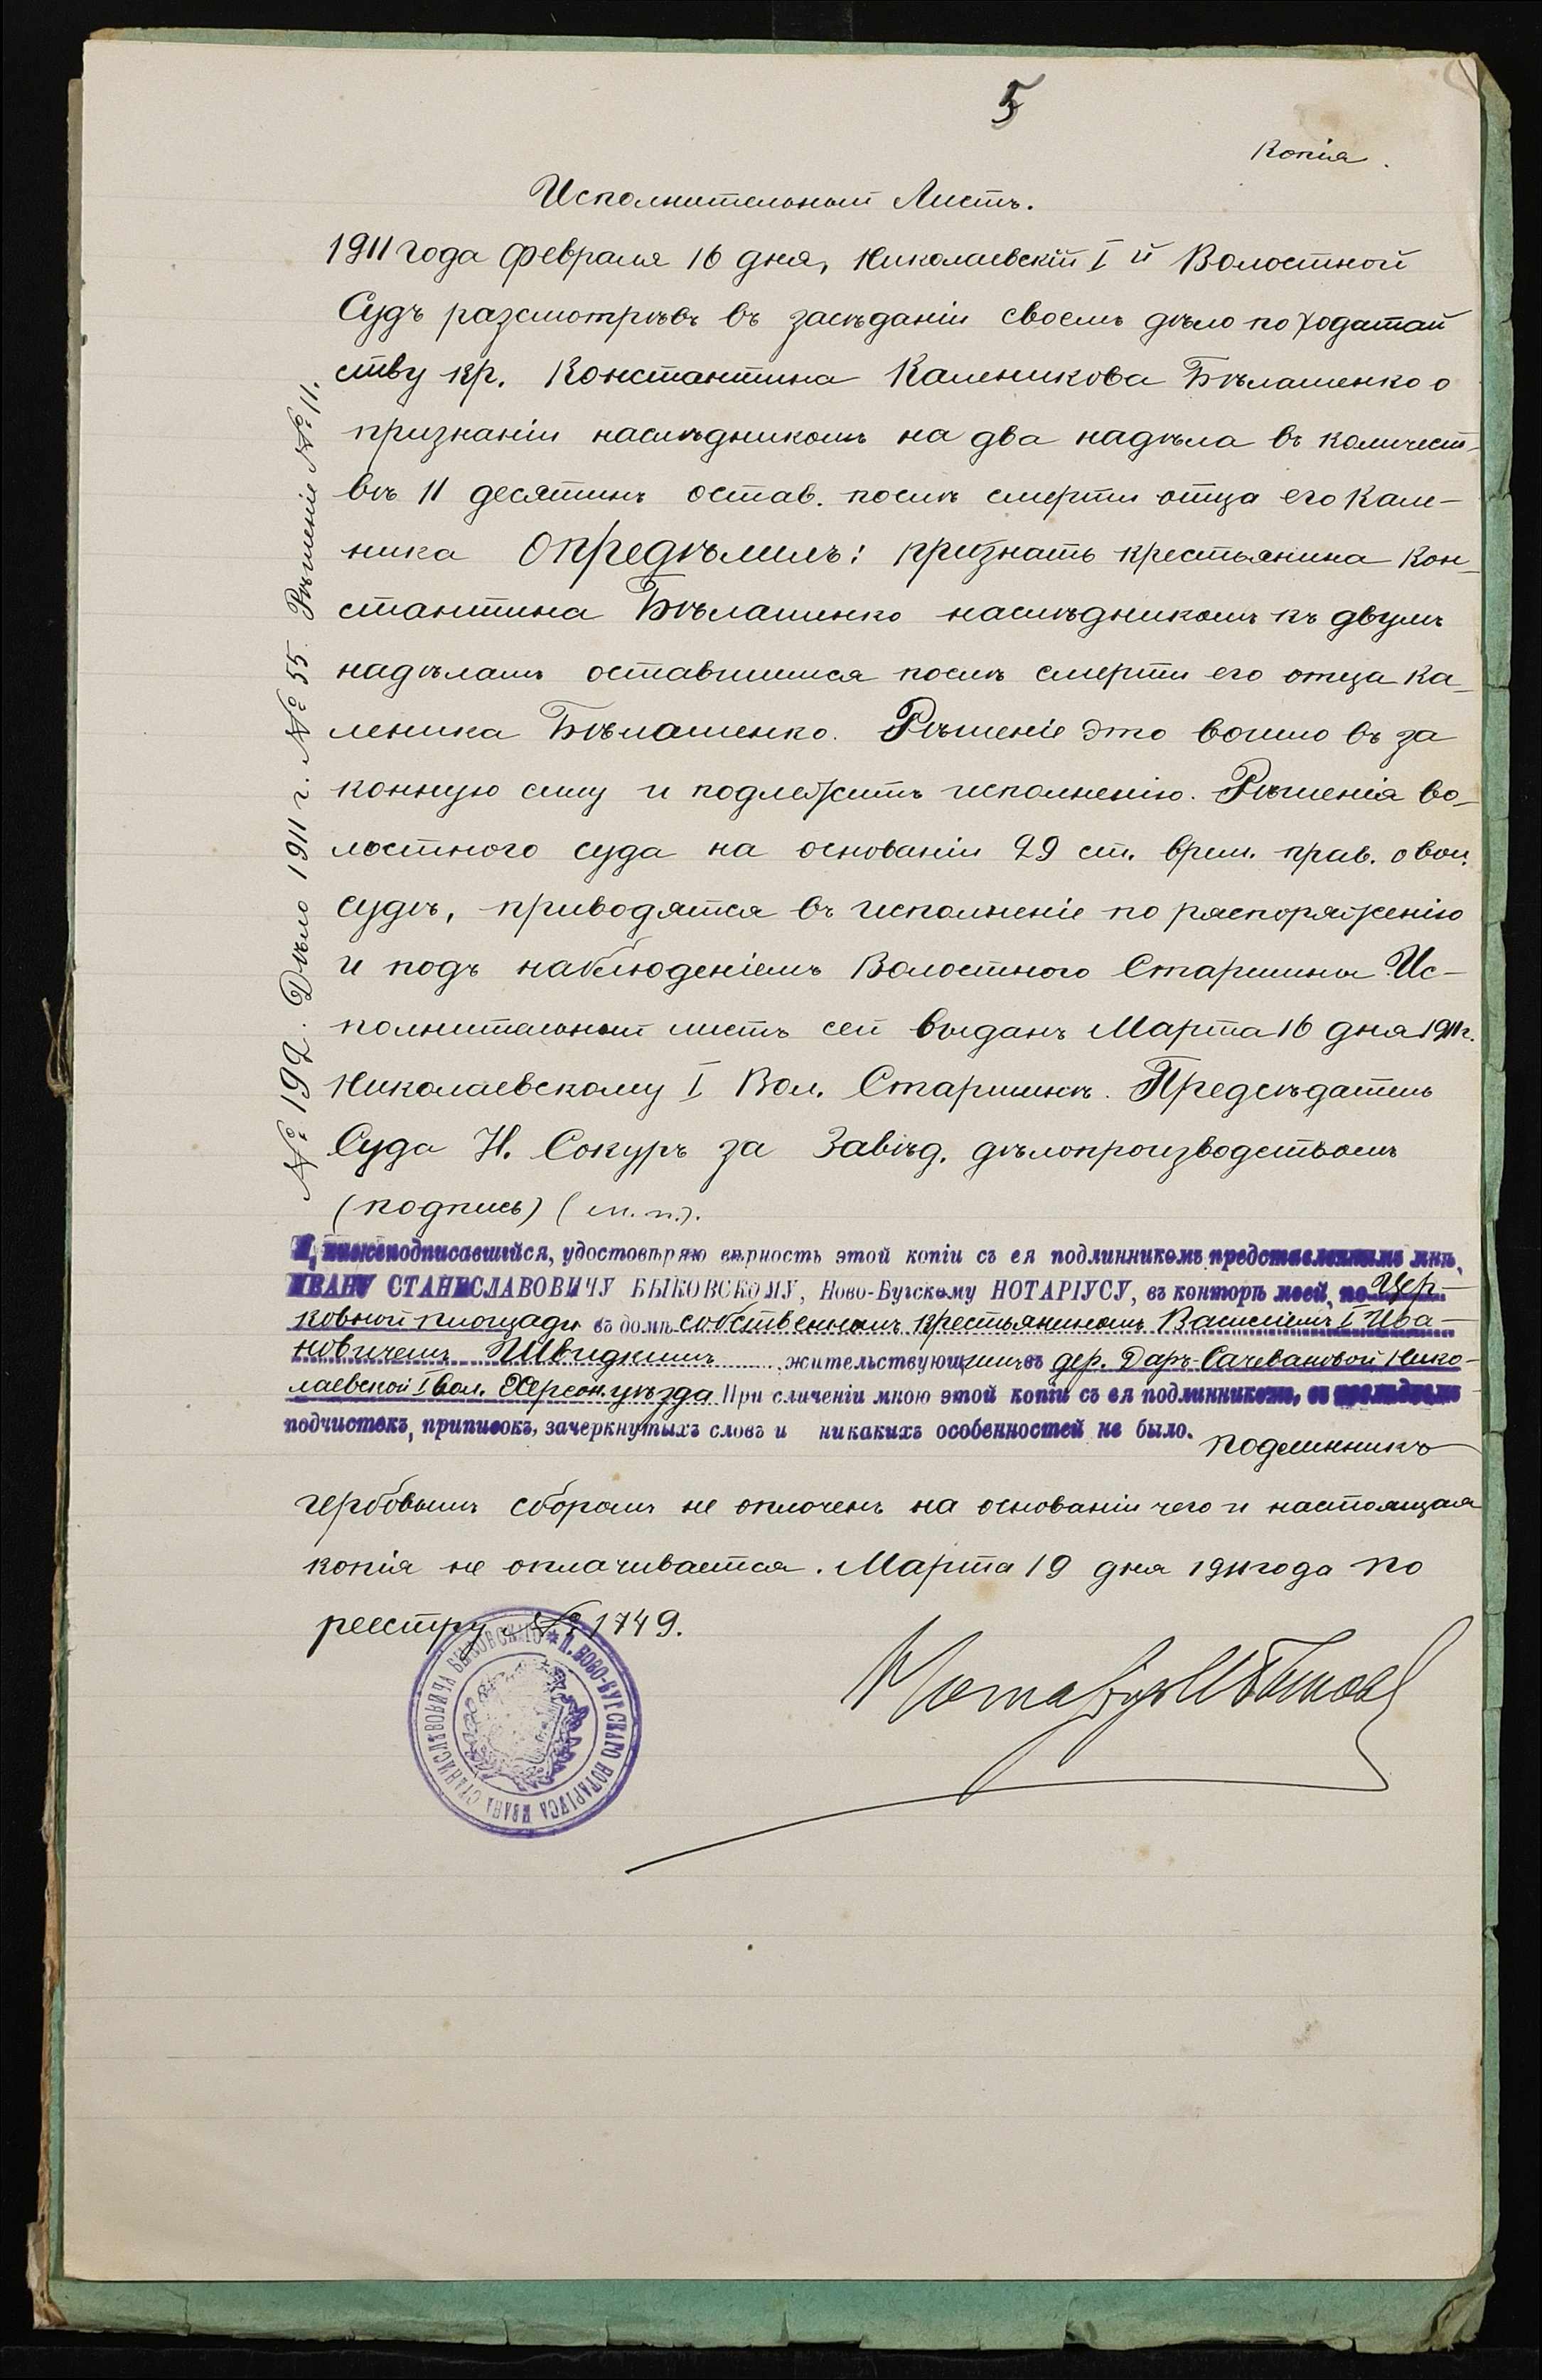 5
Копія.
Исполнительный Листъ.
1911 года Февраля 16 дня, Николаевскій I й Волостной
Судъ разсмотрѣвъ въ засѣданіи своемъ дѣло по ходатай
ству кр. Константина Каленикова Бѣлашенко о
признаніи наслѣдникомъ на два надѣла въ количест-
вѣ 11 десятинъ остав. послѣ смерти отца его Кале-
ника Опредѣлилъ: признать крестьянина Кон-
стантина Бѣлашенко наслѣдникомъ къ двумъ
надѣламъ оставшимися послѣ смерти его отца Ка-
леника Бѣлашенко. Рѣшеніе это вошло въ за
конную силу и подлежитъ исполненію. Рѣшенія во-
лостного суда на основаніи 29 ст. врем. прав. о вол.
судѣ, приводятся въ исполненіе по распоряженію
и подъ наблюденіемъ Волостного Старшины. Ис-
полнительный листъ сей выданъ Марта 16 дня 1911 г.
Николаевскому I Вол. Старшинѣ. Предсѣдатель
Суда Н. Сокуръ за Завѣд. дѣлопроизводствомъ
(подпись) (м.п.).
№ 192. Дѣло 1911 г. № 55. Рѣшеніе № 11.
Я, нижеподписавшійся, удостовѣряю вѣрность этой копіи съ ея подлинникомъ представленнымъ мнѣ,
ИВАНУ СТАНИСЛАВОВИЧУ БЫКОВСКОМУ, Ново-Бугскому НОТАРІУСУ, въ конторѣ моей, по Цер-
ковной площади въ домѣ собственномъ крестьяниномъ Василіемъ I Ива-
новичемъ Швидкимъ жительствующимъ въ дер. Даръ-Сачевановой Нико-
лаевской I вол. Херсон. уѣзда При сличеніи мною этой копіи съ ея подлинникомъ, въ послѣднемъ
подчистокъ, приписокъ, зачеркнутыхъ словъ и никакихъ особенностей не было. подлинникъ
гербовымъ сборомъ не оплоченъ на основаніи чего и настоящая
копія не оплачивается. Марта 19 дня 1911 года по
реестру № 1749.
Нотаріусъ И Быков
* Н. НОВО-БУГСКАГО НОТАРІУСА ИВАНА СТАНИСЛАВОВИЧА БЫКОВСКАГО